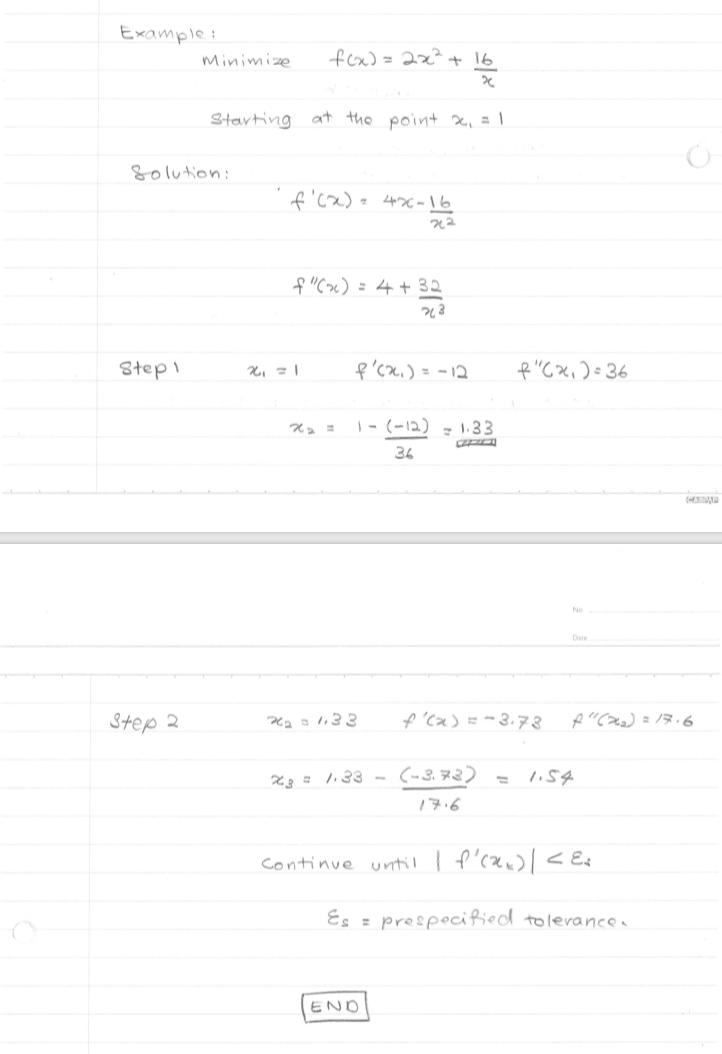 Example:
Minimize f(x) = 2x² + 16/x
Starting at the point x₁ = 1
Solution:
f'(x) = 4x - 16/x²
f''(x) = 4 + 32/x³
Step 1 x₁ = 1 f'(x₁) = -12 f''(x₁) = 36
x₂ = 1 - (-12)/36 = 1.33
CAMPAP
No
Date
Step 2 x₂ = 1.33 f'(x) = -3.73 f''(x₂) = 17.6
x₃ = 1.33 - (-3.73)/17.6 = 1.54
Continue until | f'(xₖ)| < εs
εs = prespecified tolerance.
END